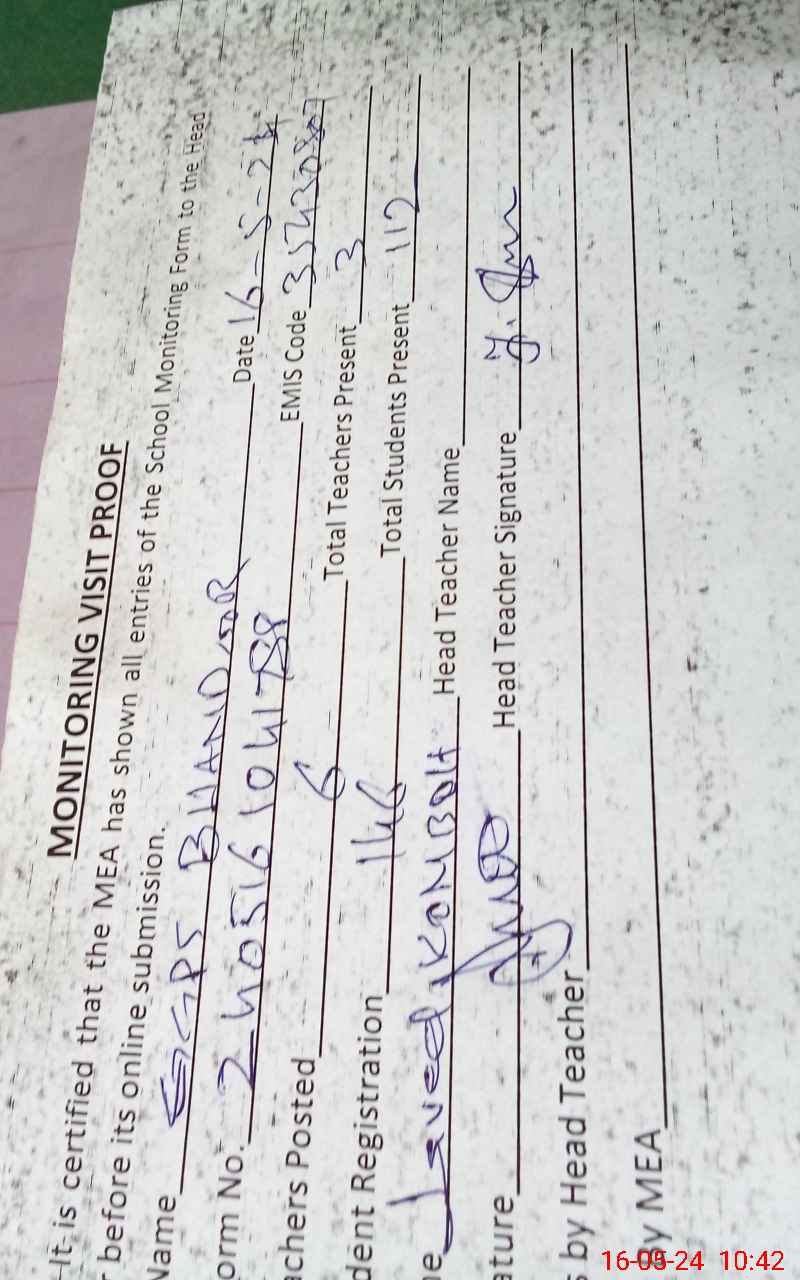 MONITORING VISIT PROOF
It is certified that the MEA has shown all entries of the School Monitoring Form to the Head
r before its online submission.
Name GGPS BHANDOOR Date 16-5-24
orm No. 240516104788 EMIS Code 35430807
achers Posted 6 Total Teachers Present 3
dent Registration 146 Total Students Present 112
ne Javed KAMBOH Head Teacher Name
ature Head Teacher Signature
s by Head Teacher
By MEA
16-05-24 10:42